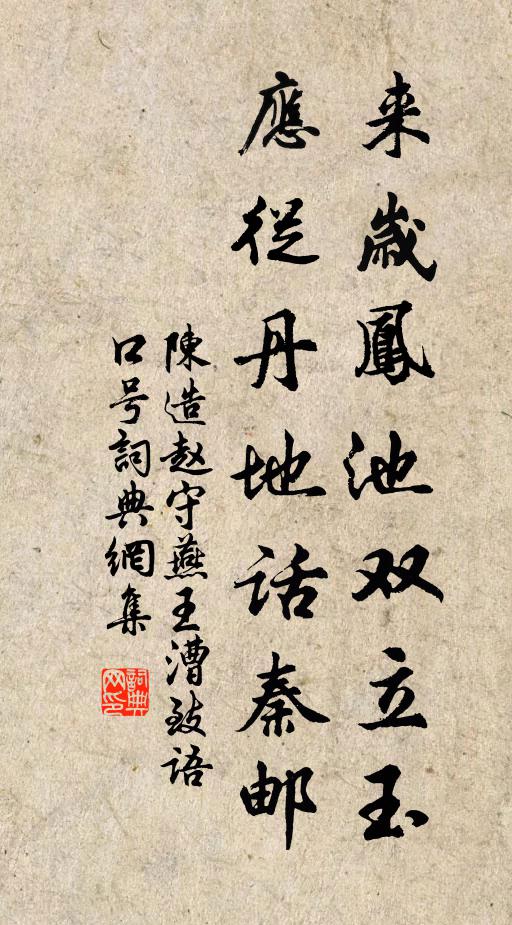 来歲鳳池双立玉
應從丹地话秦邮
陳造赵守燕王漕致语
口号詞典網集
詞典网印